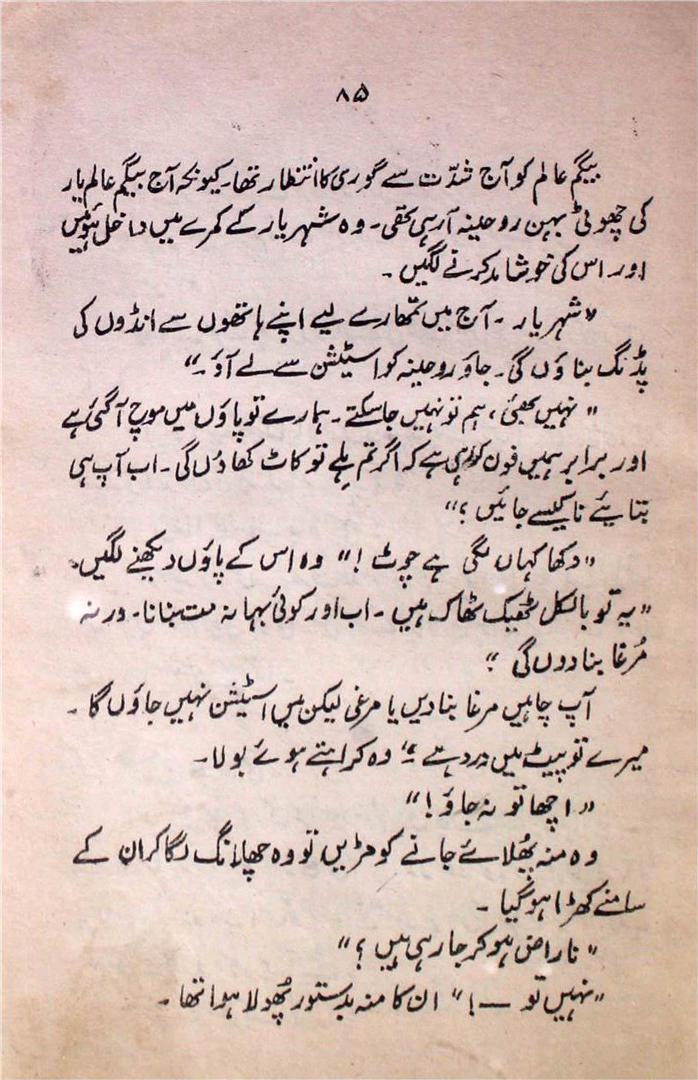 ۸۵
بیگم عالم کو آج شدّت سے گوری کا انتظار تھا۔ کیونکہ آج بیگم عالم یار
کی چھوٹی بہن روحینہ آ رہی تھی۔ وہ شہریار کے کمرے میں داخل ہوئیں
اور اس کی خوشامد کرنے لگیں۔
"شہریار۔ آج میں تمھارے لیے اپنے ہاتھوں سے انڈوں کی
پڈنگ بناؤں گی۔ جاؤ روحینہ کو اسٹیشن سے لے آؤ۔"
"نہیں بھئی، ہم تو نہیں جا سکتے۔ ہمارے تو پاؤں میں موچ آ گئی ہے
اور برابر ہمیں فون کر رہی ہے کہ اگر تم ہلے تو کاٹ کھا دُں گی۔ اب آپ ہی
بتایئے نا کیسے جائیں؟"
"دکھا کہاں لگی ہے چوٹ!" وہ اس کے پاؤں دیکھنے لگیں۔
"یہ تو بالکل ٹھیک ٹھاک ہیں۔ اب اور کوئی بہانہ مت بنانا۔ ورنہ
مُرغا بنا دوں گی"
آپ چاہیں مرغا بنا دیں یا مرغی لیکن میں اسٹیشن نہیں جاؤں گا۔
میرے تو پیٹ میں درد ہے" وہ کراہتے ہوئے بولا۔
"اچھا تو نہ جاؤ!"
وہ منہ پھُلائے جانے کو مڑیں تو وہ چھلانگ لگا کر ان کے
سامنے کھڑا ہو گیا۔
"ناراض ہو کر جا رہی ہیں؟"
"نہیں تو —!" ان کا منہ بدستور پھُولا ہوا تھا۔